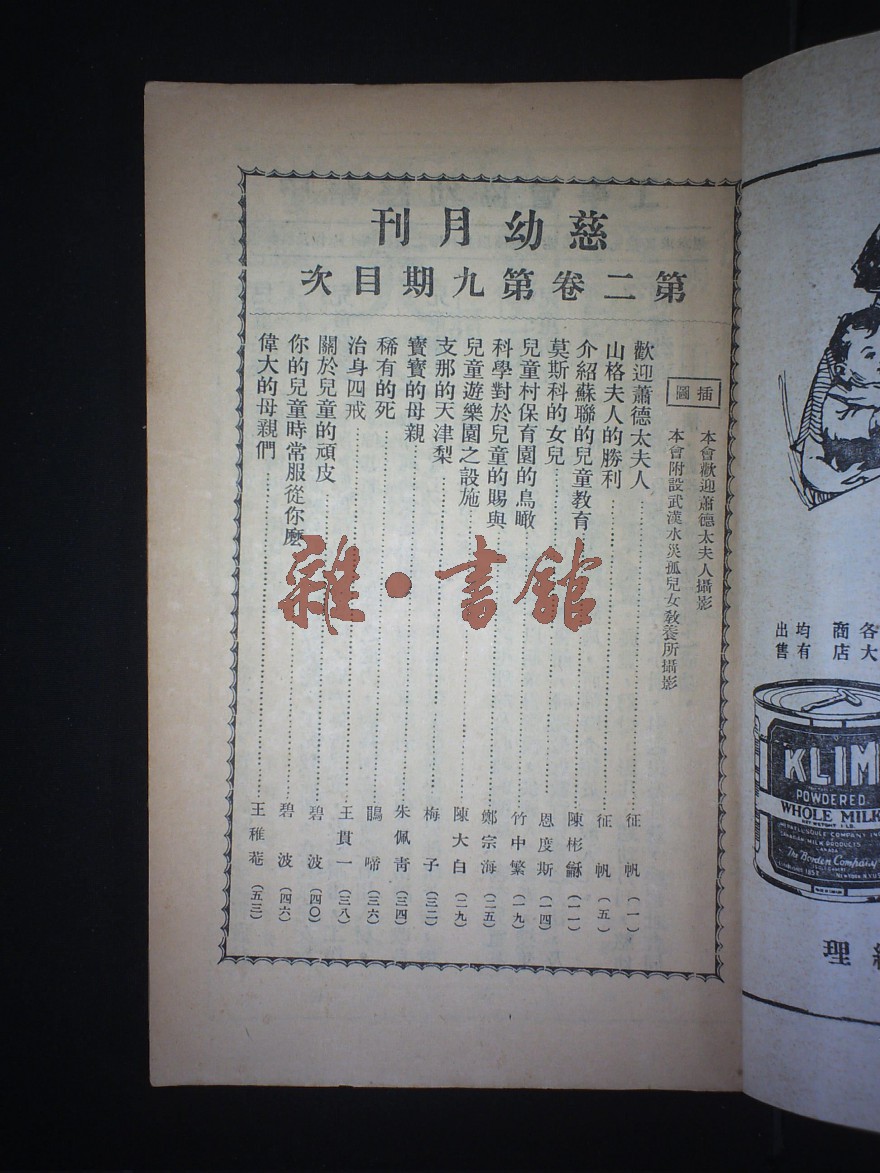 慈幼月刊
第二卷第九期目次
插圖
本會歡迎蕭德太夫人攝影
本會附設武漢水災孤兒女教養所攝影
歡迎蕭德太夫人……征帆(一)
山格夫人的勝利……征帆(五)
介紹蘇聯的兒童教育……陳彬龢(一一)
莫斯科的女兒……恩度斯(一四)
兒童村保育園的鳥瞰……竹中繁(一九)
科學對於兒童的賜與……鄭宗海(二五)
兒童遊樂園之設施……陳大白(二九)
支那的天津梨……梅子(三二)
寶寶的母親……朱佩青(三四)
稀有的死……鵑啼(三六)
治身四戒……王貫一(三八)
關於兒童的頑皮……碧波(四〇)
你的兒童時常服從你麽……碧波(四六)
偉大的母親們……王稚菴(五三)
雜·書館
各大
商店
均有
出售
KLIM
POWDERED
WHOLE MILK
The Borden Company
理